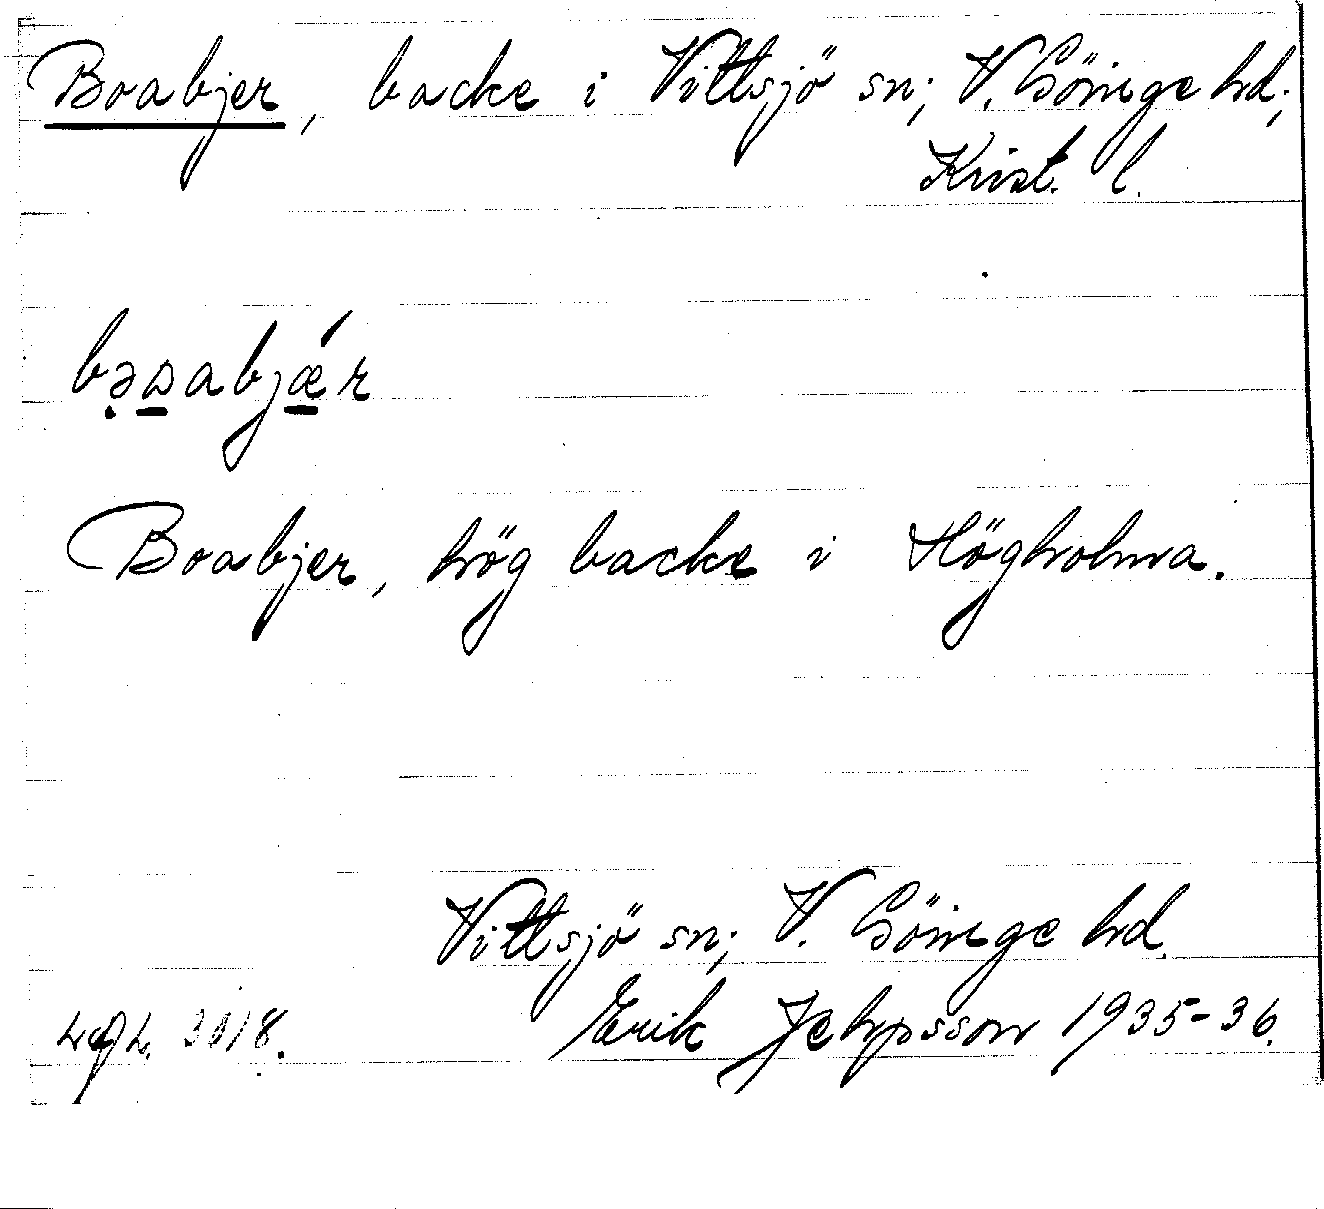 Boabjer, backe i Vittsjö sn; V. Göinge hd;
Krist. l.
bəɒabjǽr
Boabjer, hög backe i Högholma.
Vittsjö sn; V. Göinge hd.
Erik Jehpsson 1935-36.
3018.